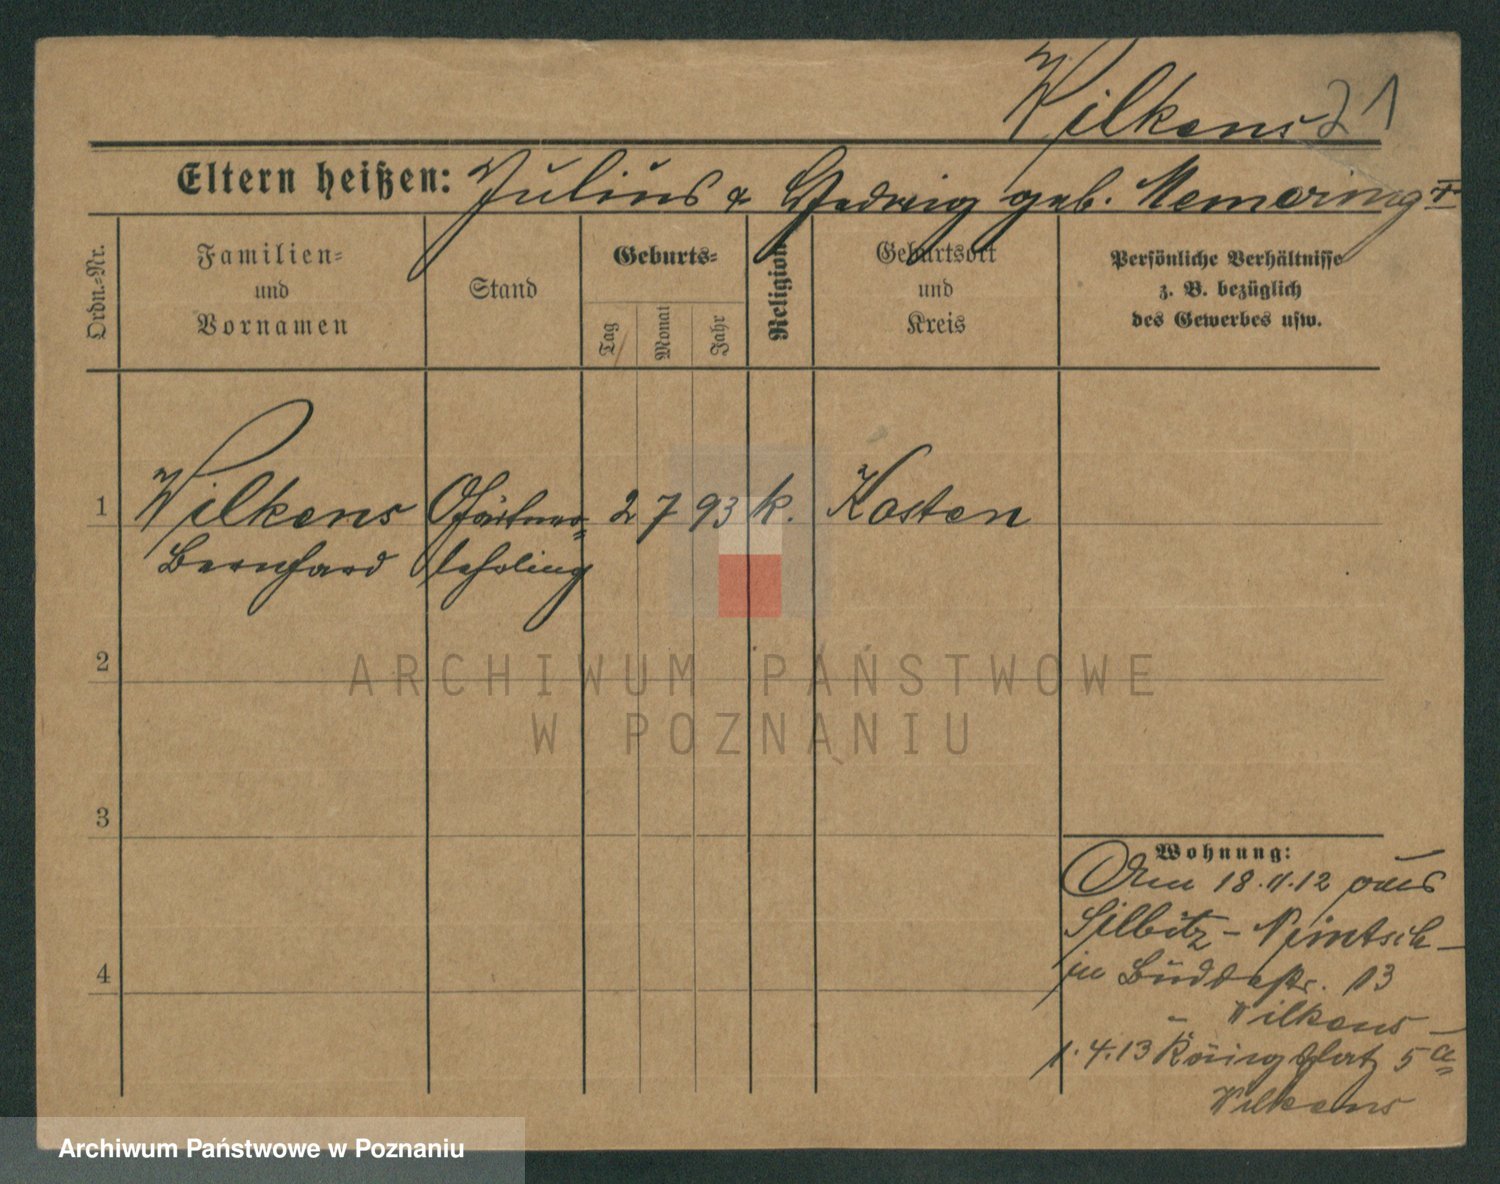 Wilkens 21
Eltern heißen: Julius & Hedwig geb.
Ordn.-Nr.
Familien-
und
Vornamen
Stand
Geburts-
Tag
Monat
Jahr
Religion
Geburtsort
und
Kreis
Persönliche Verhältnisse
z. B. bezüglich
des Gewerbes usw.
1 Wilkens Gärtner- 2 7 93 k. Kosten
Bernhard lehrling
2
3
4
Wohnung:
18.11.12 aus
Silbitz - Nimtsch
in Buddestr. 13
Wilkens
1.4.13 Königsplatz 5a
Wilkens
ARCHIWUM PAŃSTWOWE
W POZNANIU
Archiwum Państwowe w Poznaniu